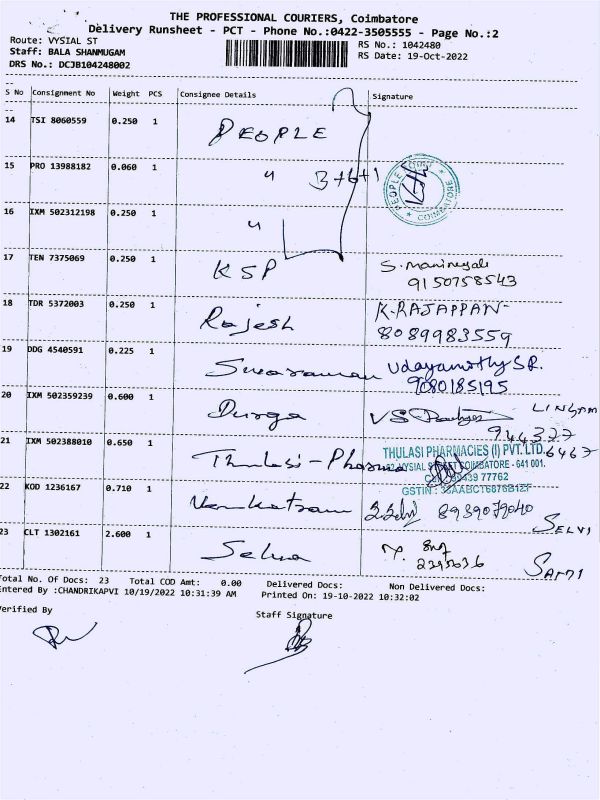 THE PROFESSIONAL COURIERS, Coimbatore
Delivery Runsheet - PCT - Phone No.:0422-3505555 - Page No.:2
Route: VYSIAL ST
RS No.: 1042480
Staff: BALA SHANMUGAM
RS Date: 19-Oct-2022
DRS No.: DCJB104248002
S No Consignment No Weight PCS Consignee Details Signature
14 TSI 8060559 0.250 1 PEOPLE
15 PRO 13988182 0.060 1 " 3+6+1
PEOPLE COIMBATORE
16 IXM 502312198 0.250 1 "
17 TEN 7375069 0.250 1 KSP S.
9150758543
18 TDR 5372003 0.250 1 Rajesh K-RAJAPPAN
8089983559
19 DDG 4540591 0.225 1
9080185195
20 IXM 502359239 0.600 1 Durga VS LINGAM
944327
6467
21 IXM 502388010 0.650 1 Thulasi-Pharma THULASI PHARMACIES (I) PVT. LTD.
VYSIAL STREET COIMBATORE - 641 001.
39 77762
GSTIN :
22 KOD 1236167 0.710 1 Venkatram 8939079040 SELVI
23 CLT 1302161 2.600 1 Selva
Total No. Of Docs: 23 Total COD Amt: 0.00 Delivered Docs: Non Delivered Docs:
Entered By :CHANDRIKAPVI 10/19/2022 10:31:39 AM Printed On: 19-10-2022 10:32:02
Verified By Staff Signature